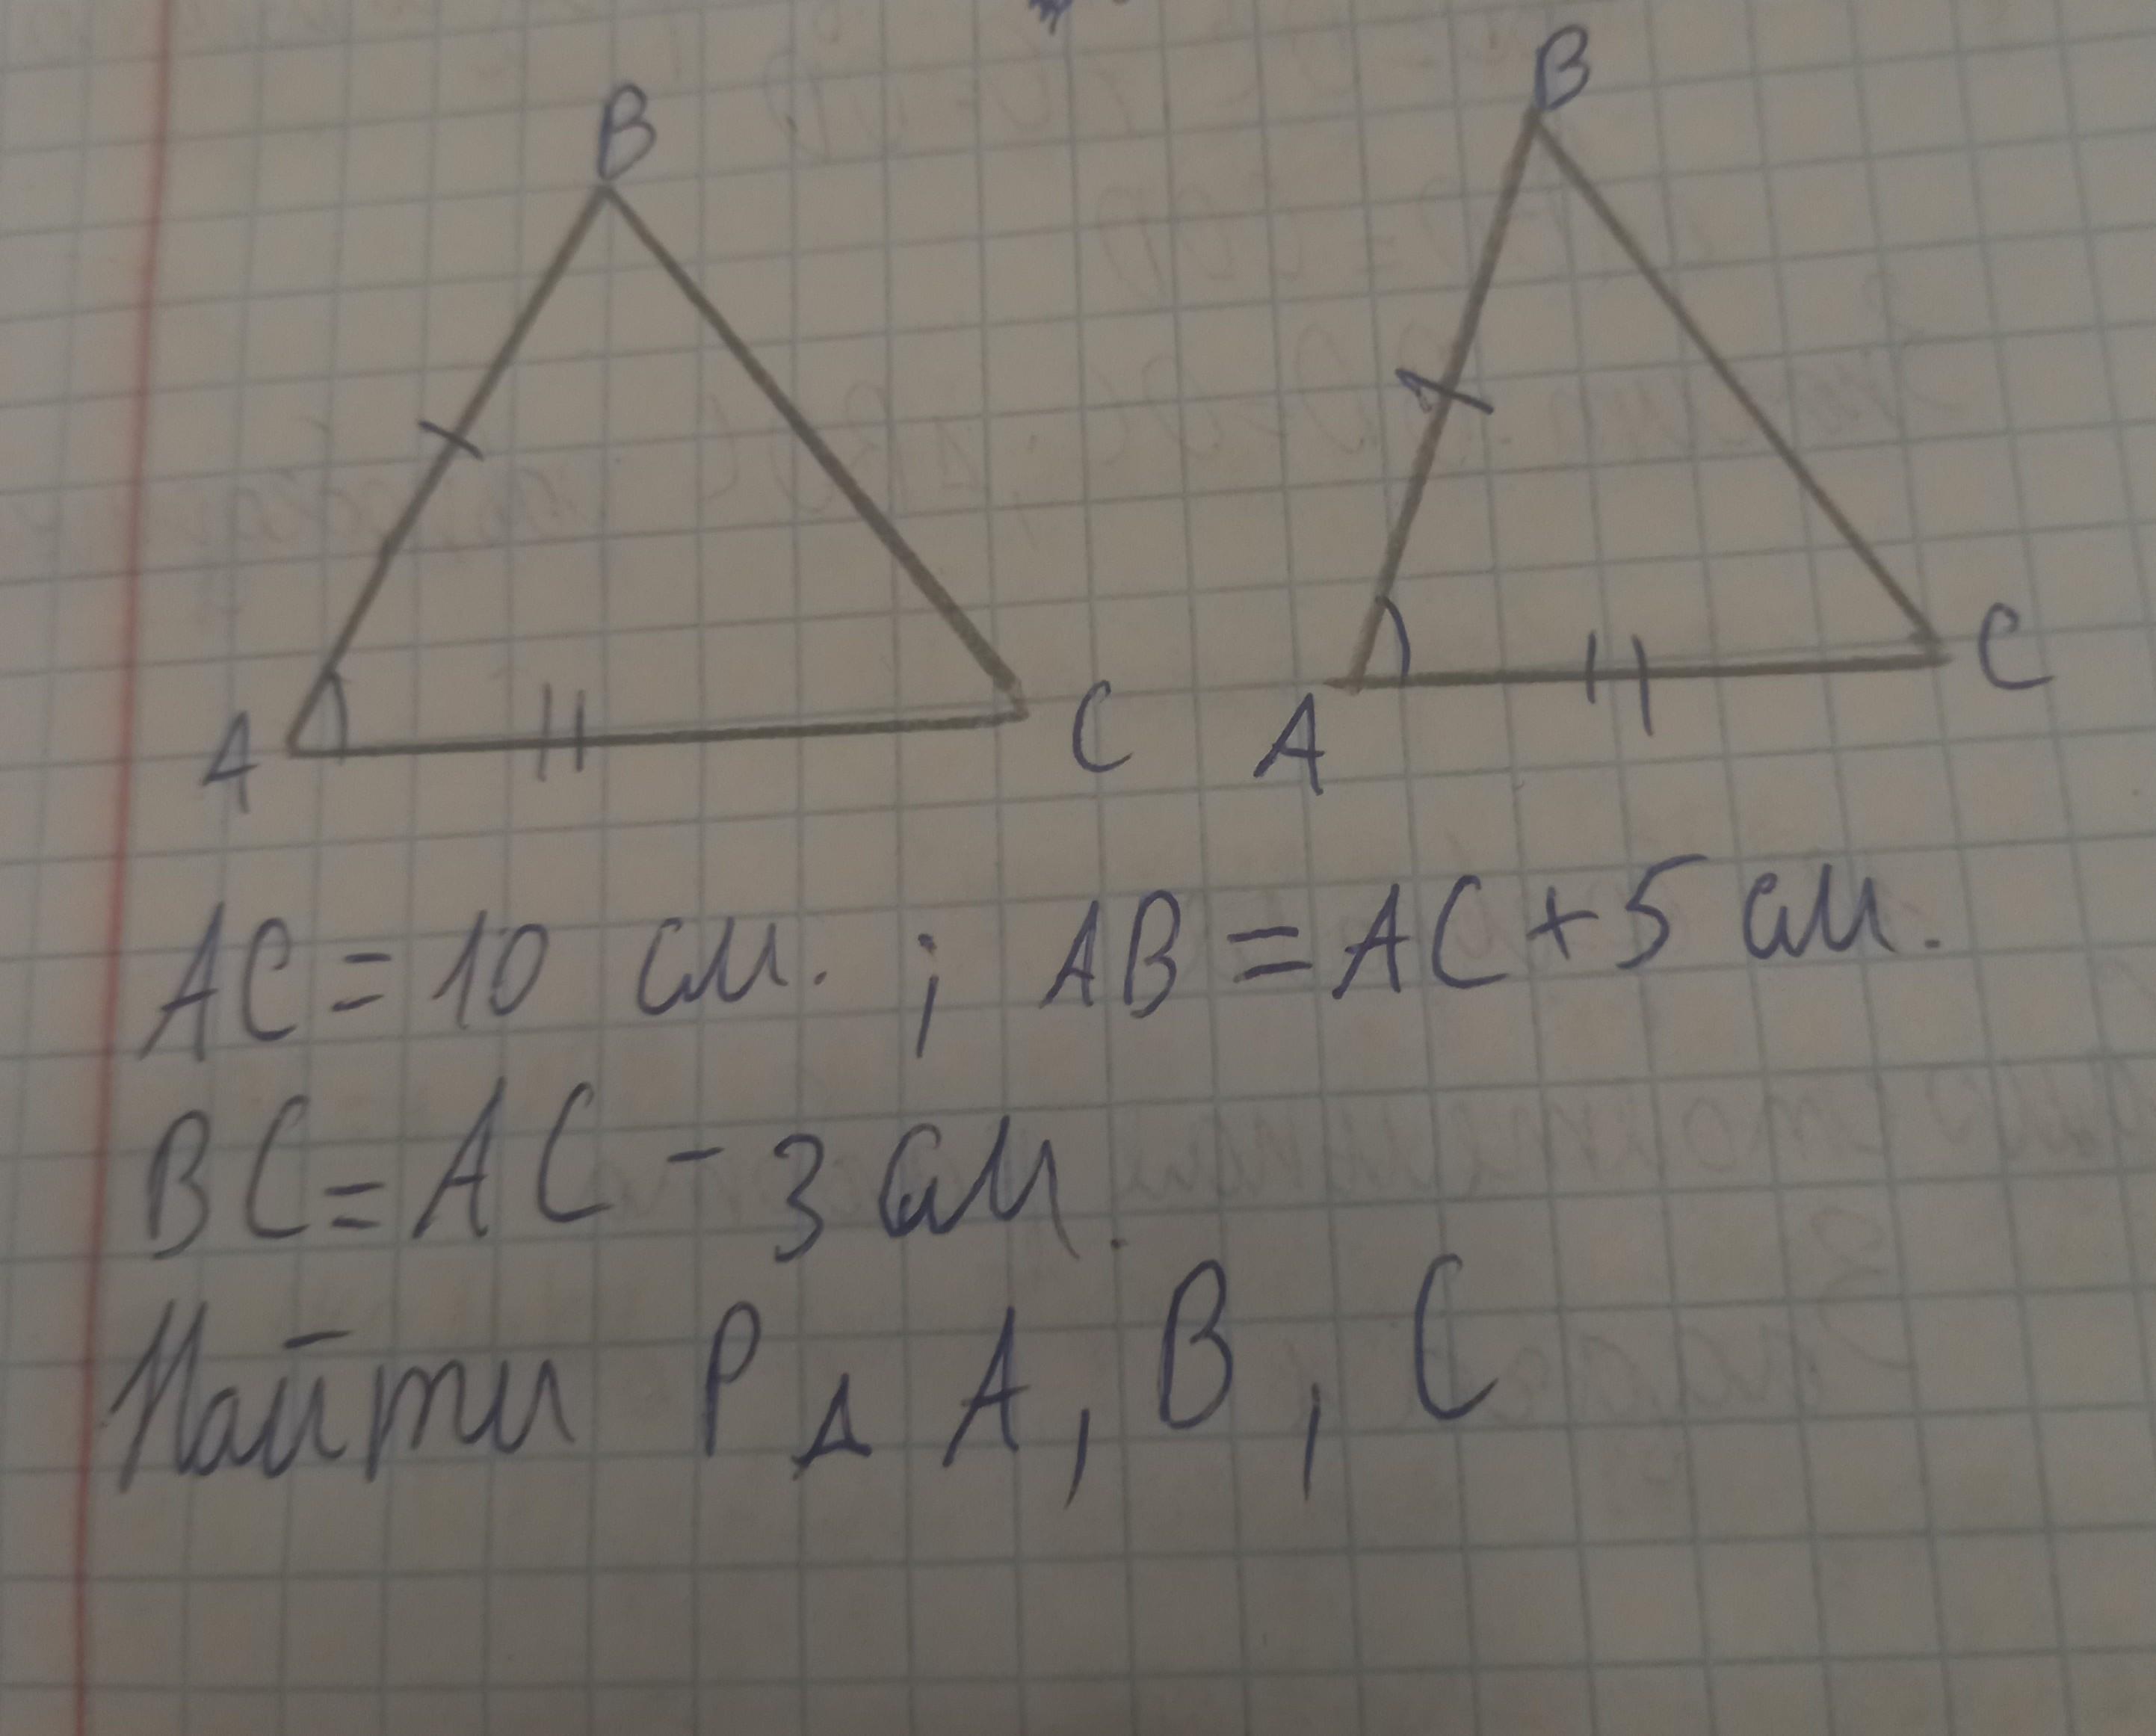 B B
A C A C
AC = 10 см. ; AB = AC + 5 см.
BC = AC - 3 см.
Найти P △ A, B, C